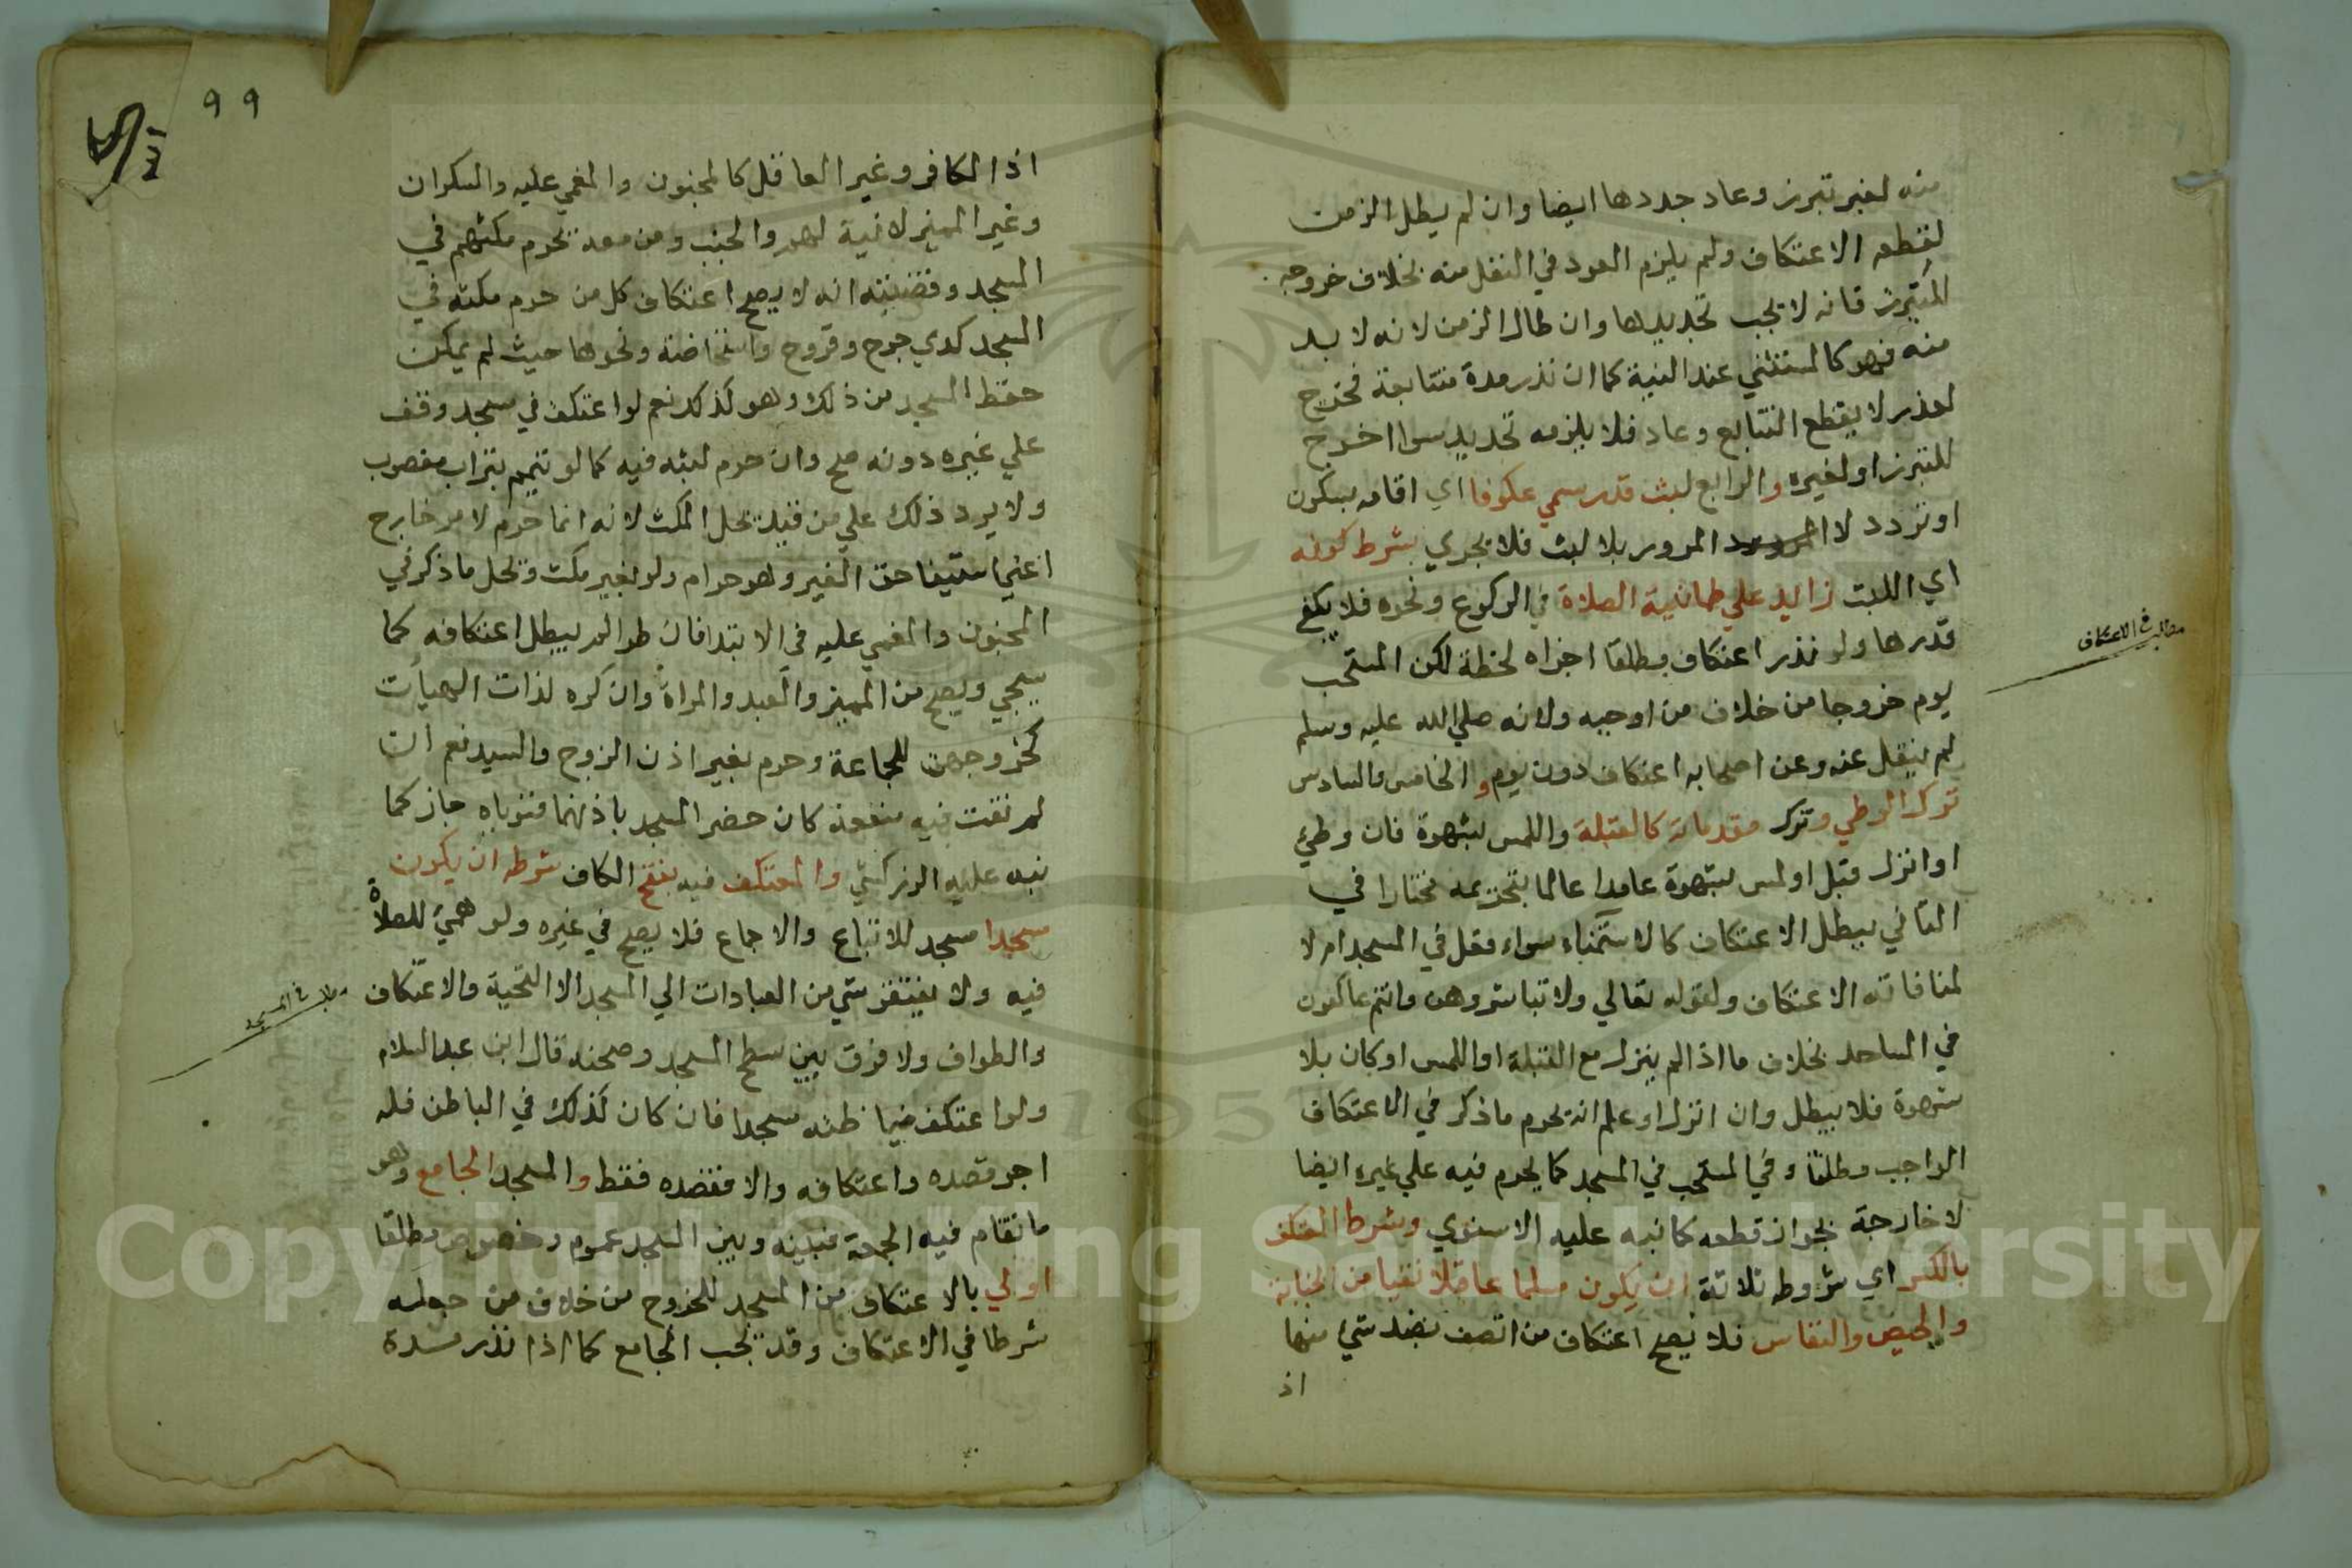 منه لغير تبرز وعاد جددها ايضا وان لم يطل الزمن
لقطعه الاعتكاف ولم يلزم العود في النفل منه بخلاف خروجه
لتبرز فانه لا يجب تجديدها وان طال الزمن لانه لا بد
منه فهو كالمستثني عند النية كما ان نذر مدة متتابعة فخرج
لعذر لا يقطع التتابع وعاد فلا يلزمه تجديد سوا اخرج
للتبرز او لغيره والرابع لبث قدر يسمي عكوفا اي اقامه بسكون
او تردد لا المرور بلا لبث فلا يجزي بشرط كونه
اي اللبث زايد علي طمانية الصلاة في الركوع ونحوه فلا يكفي
قدرها ولو نذر اعتكاف مطلقا اجزاه لحظة لكن المستحب
يوم خروجا من خلاف من اوجبه ولانه صلي الله عليه وسلم
لم ينقل عنه وعن اصحابه اعتكاف دون يوم والخامس والسادس
ترك الوطي وترك مقدماته كالقبلة واللمس بشهوة فان وطئ
او انزل قبل او لمس بشهوة عامدا عالما بتحريمه مختارا في
الثاني يبطل الاعتكاف كالاستمناء سواء فعل في المسجد ام لا
لمنافاته الاعتكاف ولقوله تعالي ولا تباشروهن وانتم عاكفون
في المساجد بخلاف ما اذا لم ينزل مع القبلة او اللمس او كان بلا
شهوة فلا يبطل وان انزل وعلم انه يحرم ما ذكر في الاعتكاف
الواجب مطلقا وفي المستحب في المسجد كما يحرم فيه علي غيره ايضا
لا خارجة بجواز قطعه كما نبه عليه الاسنوي وشرط المعتكف
بالكسر اي شروطه ثلاثة ان يكون مسلما عاقلا نقيا من الجنابة
والحيض والنفاس فلا يصح اعتكاف من اتصف بضد شئ منها
اذ
مطلب في الاعتكاف
٩٩
اذ الكافر وغير العاقل كالمجنون والمغمي عليه والسكران
وغير المميز لا نية لهم والجنب ومن معه يحرم مكثهم في
المسجد وقضيته انه لا يصح اعتكاف كل من حرم مكثه في
المسجد كذي جرح وقروح واستحاضة ونحوها حيث لم يمكن
حفظ المسجد من ذلك وهو كذلك نعم لو اعتكف في مسجد وقف
علي غيره دونه صح وان حرم لبثه فيه كما لو تيمم بتراب مغصوب
ولا يرد ذلك علي من قيد بحل المكث لانه انما حرم لامر خارج
اعني استيفا حق الغير وهو حرام ولو بغير مكث ومحل ما ذكر في
المجنون والمغمي عليه في الابتدا فان طرا لم يبطل اعتكافه كما
سيجي ويصح من المميز والعبد والمراة وان كره لذات الهيأت
كخروجهن للجماعة وحرم بغير اذن الزوج والسيد نعم ان
لم تفت فيه منفعة كان حضر المسجد باذنهما فنوياه جاز كما
نبه عليه الزركشي والمعتكف فيه بفتح الكاف شرطه ان يكون
مسجدا مسجد للاتباع والاجماع فلا يصح في غيره ولو هيئ للصلاة
فيه ولا يفتقر شي من العبادات الي المسجد الا التحية والاعتكاف
والطواف ولا فرق بين سطح المسجد وصحنه قال ابن عبد السلام
ولو اعتكف فيما ظنه مسجدا فان كان كذلك في الباطن فله
اجر قصده واعتكافه والا فقصده فقط والمسجد الجامع وهو
ما تقام فيه الجمعة فبينه وبين المسجد عموم وخصوص مطلقا
اولي بالاعتكاف من المسجد للخروج من خلاف من جعله
شرطا في الاعتكاف وقد يجب الجامع كما اذا نذر مدة
مطلب في المسجد
Copyright © King Saud University
1957